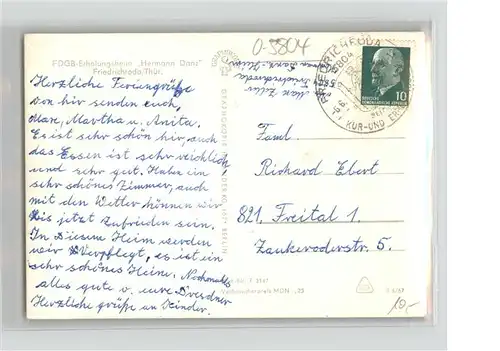 0-5804
FDGB-Erholungsheim "Hermann Danz"
Friedrichroda/Thür.
Herzliche Feriengrüße
von hir senden euch,
Max, Martha u. Anita.
Es ist sehr schön hir, auch
das Essen ist sehr reichlich
und sehr gut. Habn ein
sehr schönes Zimmer, auch
mit den Wetter können wir
bis jetzt zufrieden sein.
In diesem Heim werden
wir Verpflegt, es ist ein
sehr schönes Heim. Nochmals
alles gute v. eure Dresdner
Herzliche grüße an Kinder.
Max
Friedrichroda
FRIEDRICHRODA
5804
KUR-UND
10
DEUTSCHE
DEMOKRATISCHE REPUBLIK
Faml.
Richard Ebert
821. Freital 1.
Zaukeroderstr. 5.
Verbraucherpreis MDN -,25
10,-